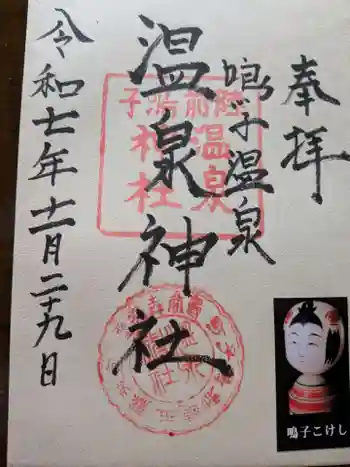 奉拝
鳴子温泉
温泉神社
令和七年十一月二十九日
陸前鳴子
温泉
神社
鳴子こけし